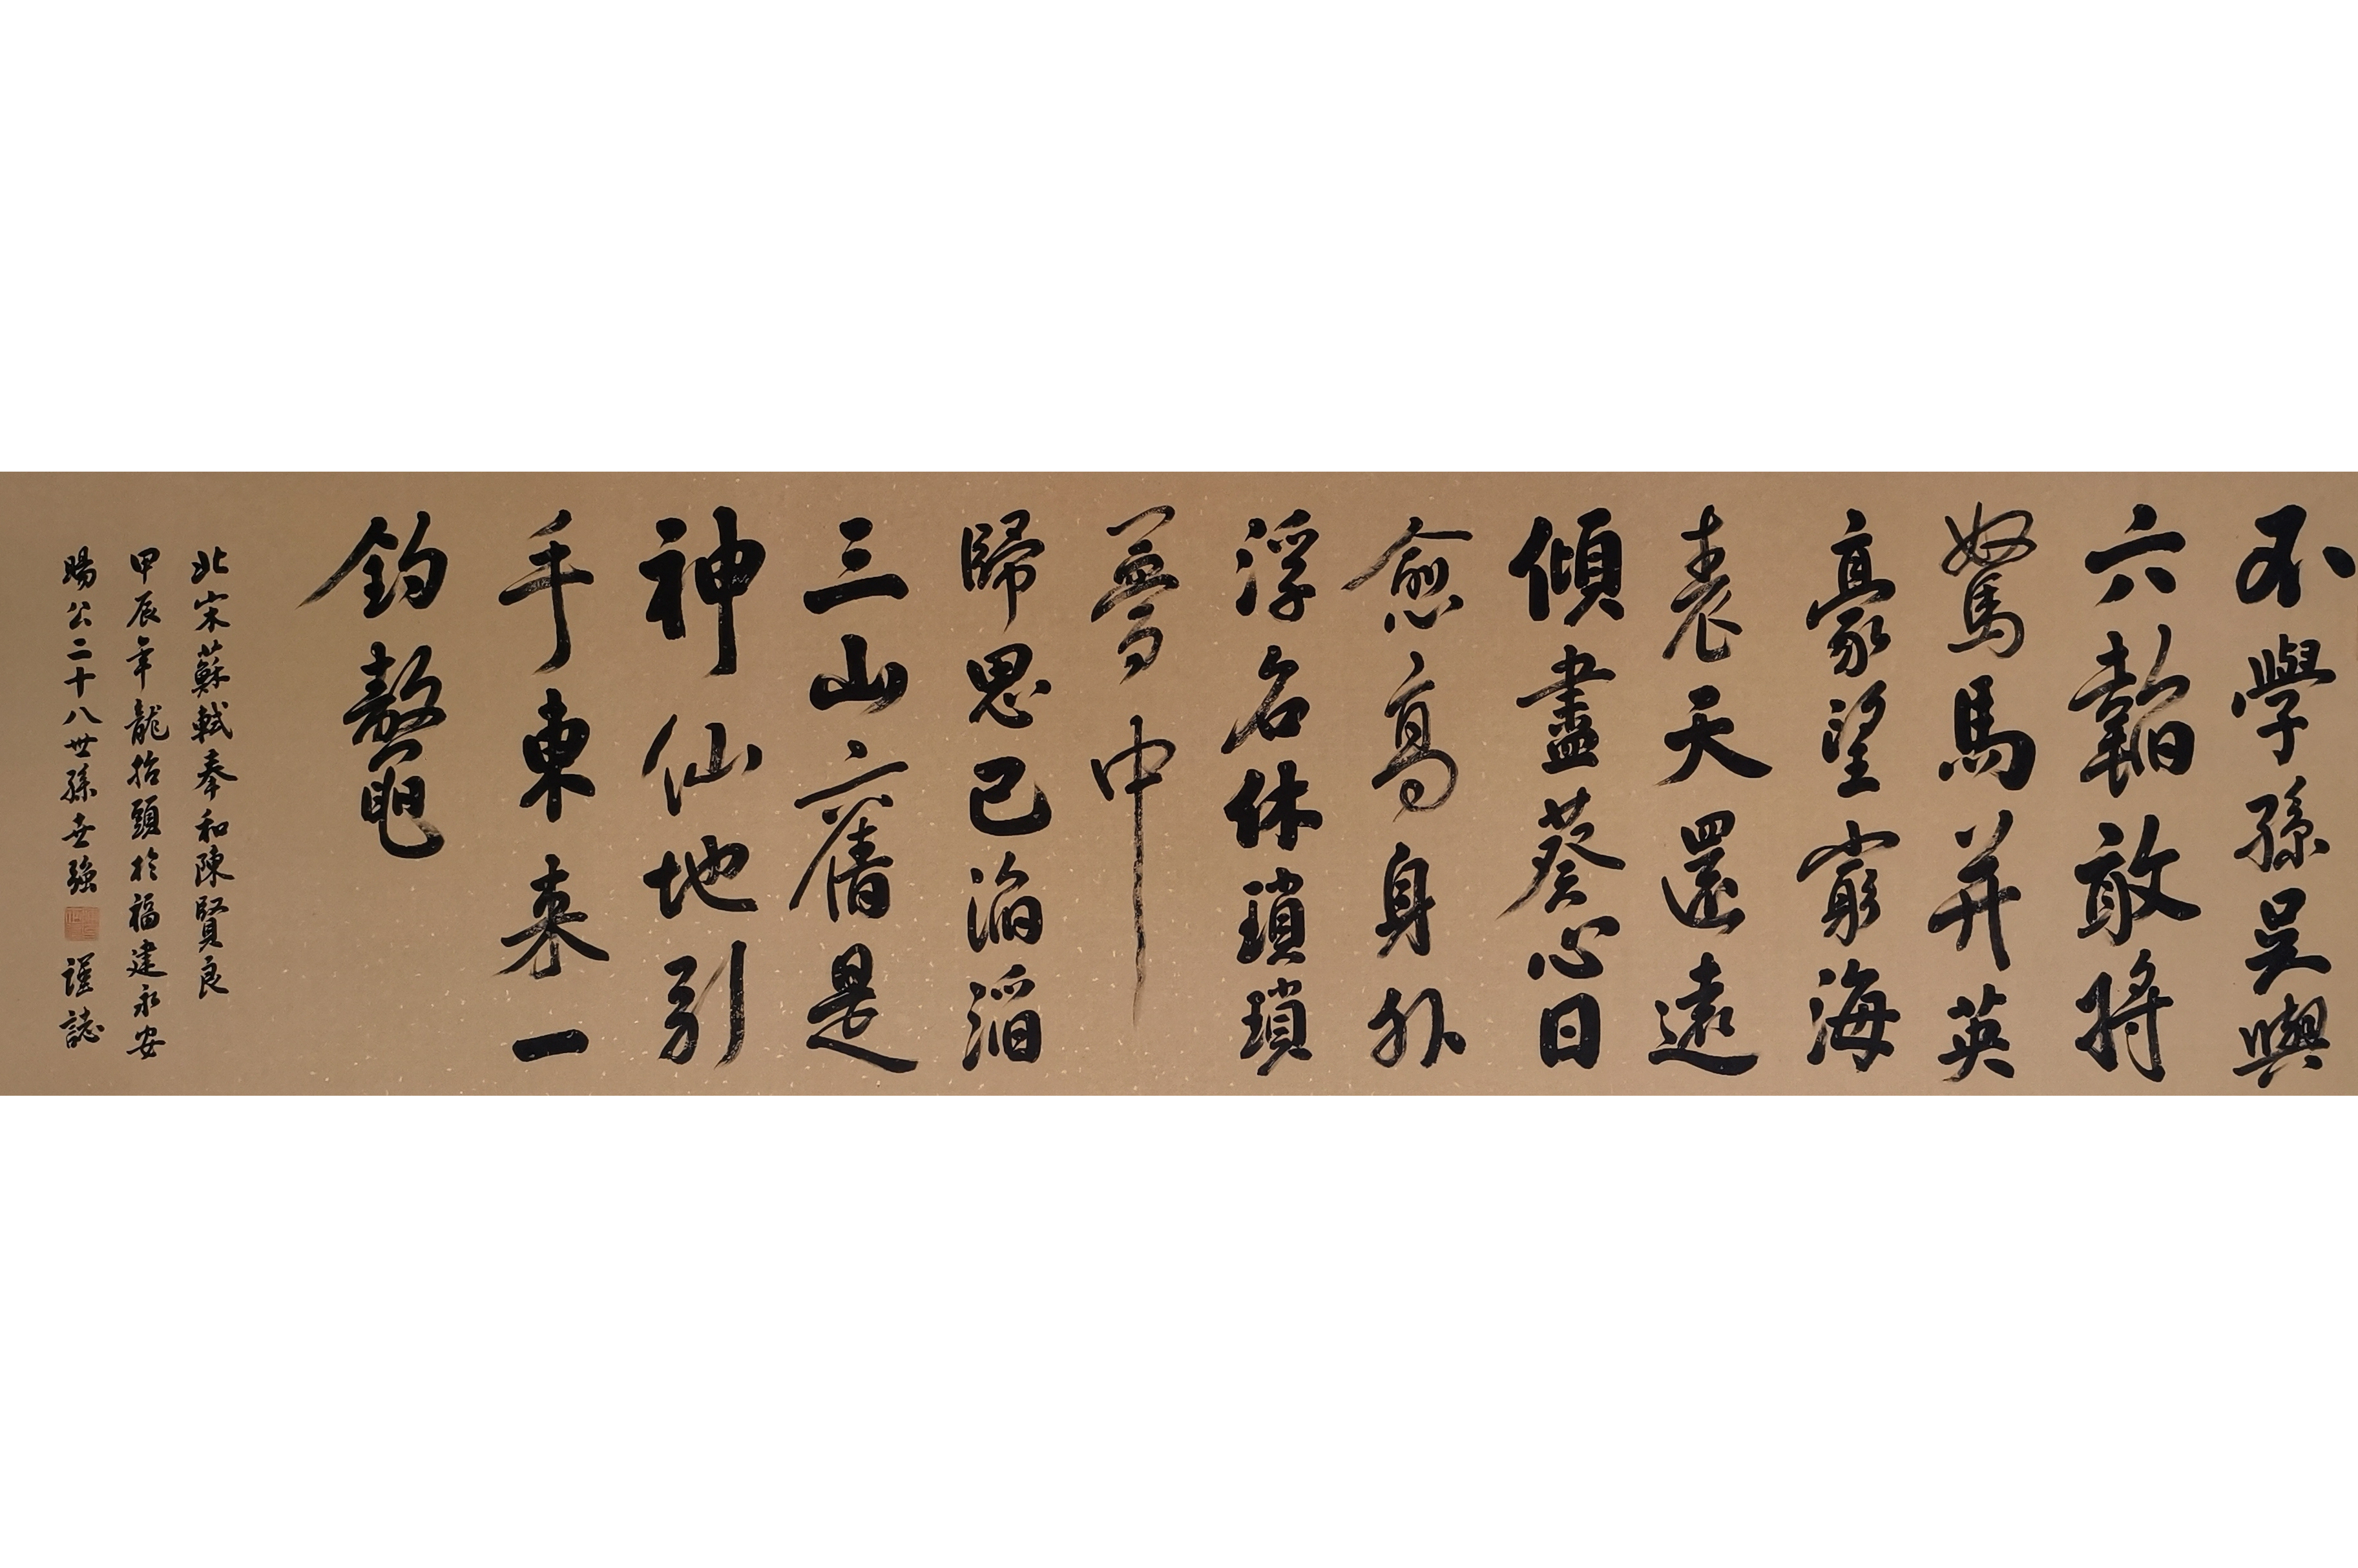 不學孫吳與
六韜敢將
駑馬并英
豪望窮海
表天還遠
傾盡葵心日
愈高身外
浮名休瑣瑣
夢中
歸思已滔滔
三山舊是
神仙地引
手東来一
釣鼇
北宋蘇軾奉和陳賢良
甲辰年龍抬頭於福建永安
賜公二十八世孫世強
謹誌